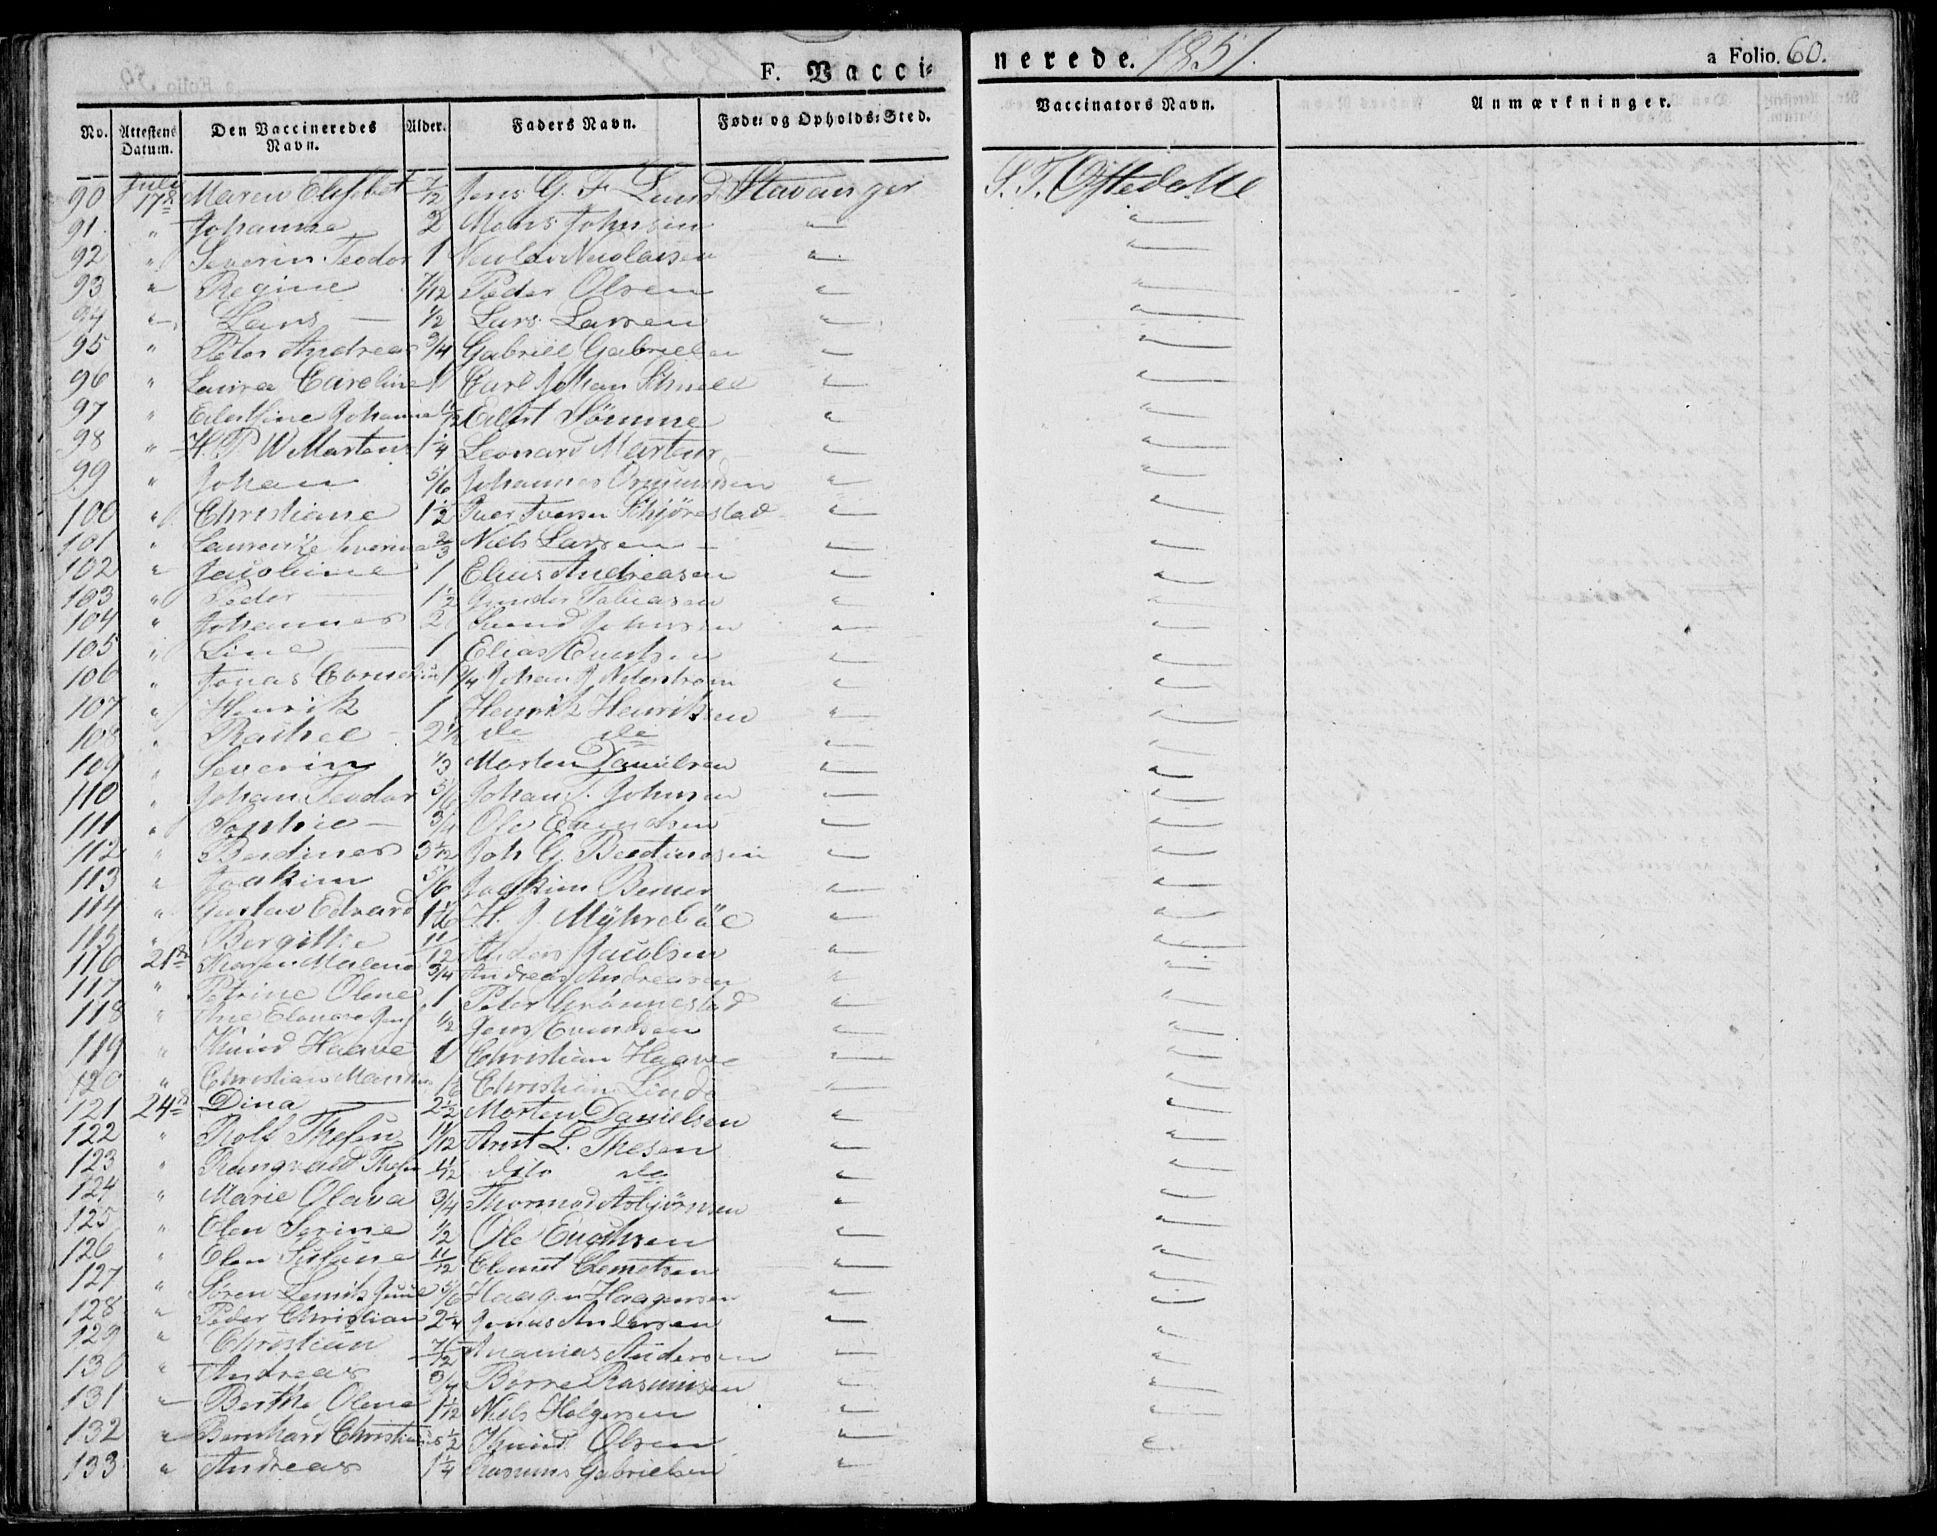 F. Vacci-
nerede. 1851.
a Folio. 60.
No. Attestens Datum. Den Vaccineredes Navn. Alder. Faders Navn. Føde- og Opholds-Sted. Vaccinators Navn. Anmærkninger.
Juli
90 17de Maren Elisebet 1/2 Jens G. F. Lund Stavanger S. T. Oftedahl
91 " Johanna 2 Mons Johnsen " "
92 " Severin Teodor 1 Nicolai Nicolaisen " "
93 " Regine 7/12 Peder Olsen " "
94 " Lars 1/2 Lars Larsen " "
95 " Peter Andreas 3/4 Gabriel Gabrielsen " "
96 " Laura Caroline 1 Carl Johan " "
97 " Johanne Eilert Sømme " "
98 " H. P. W. Martens 1 1/4 Leonard " "
99 " Johan 5/6 Johannes Osmundsen " "
100 " Christiane 1 1/2 Iver Iversen " "
101 " Severine 2/3 Niels Larsen " "
102 " Jacobine 1 Elias Andreasen " "
103 " Peder 1 1/2 Gunder Tobiasen " "
104 " Johannes 2 Svend Johnsen " "
105 " Line 1 Elias " "
106 " Jonas Cornelius 1 3/4 Johan J. " "
107 " Henrik 1 Henrik Henriksen " "
108 " Rachel 2 1/2 do do " "
109 " Severin 1/3 Morten Danielsen " "
110 " Johan Teodor 5/6 Johan T. Johnsen " "
111 " Sophie 3/4 Ole " "
112 " Berdines 3 1/12 Joh. G. " "
113 " Joakim 5/6 Joakim Berner " "
114 " Gustav Edvard 1 1/6 H. J. " "
115 " Bergitte 11/12 Anders Jacobsen " "
116 21de Karen Malena 3/4 Andreas Andreasen " "
117 " Petrine Olene 1 Peter Grønnestad " "
118 " Ane Elenore 1/2 Jens Evindsen " "
119 " Knud Haave 1 Christian Haave " "
120 " Christian 1/6 Christian Linde " "
121 24de Dina 2 1/2 Morten Danielsen " "
122 " Rolf Thesen 11/12 Arnt L. Thesen " "
123 " Rangvald Thesen dito do " "
124 " Marie Olava 3/4 Thormod Asbjørnsen " "
125 " Elen Serine 1/2 Ole " "
126 " Elen 11/12 Clemet Clemetsen " "
127 " Søren 5/6 Haagen Haagensen " "
128 " Peder Christian 2 1/4 Jonas Andersen " "
129 " Christian 7/12 Ananias Andersen " "
130 " Andreas 3/4 Børre Rasmusen " "
131 " Berthe Olena 1 1/12 Niels Holgersen " "
132 " Bernhard Christian 1/2 Knud Olsen " "
133 " Andreas 1 1/4 Rasmus Gabrielsen "